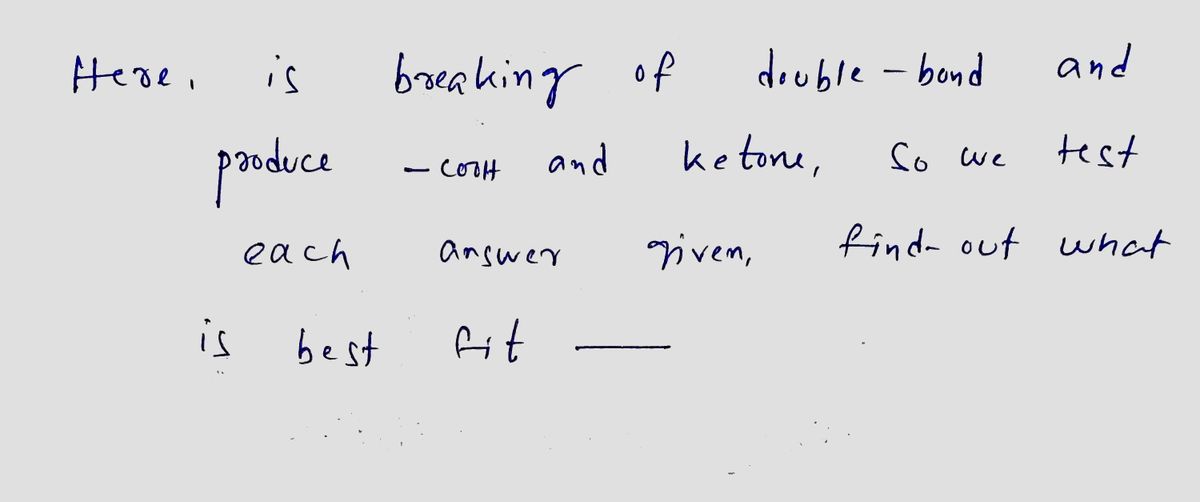 Here, is breaking of double-bond and
produce -COOH and ketone, So we test
each answer given, find-out what
is best fit —